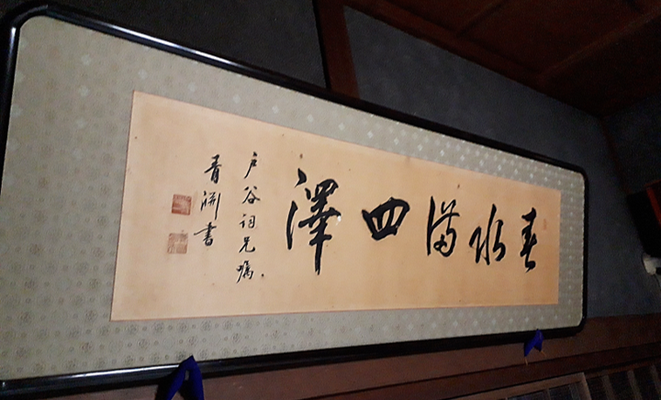 春水滿四澤
戸谷詞兄嘱
青淵書